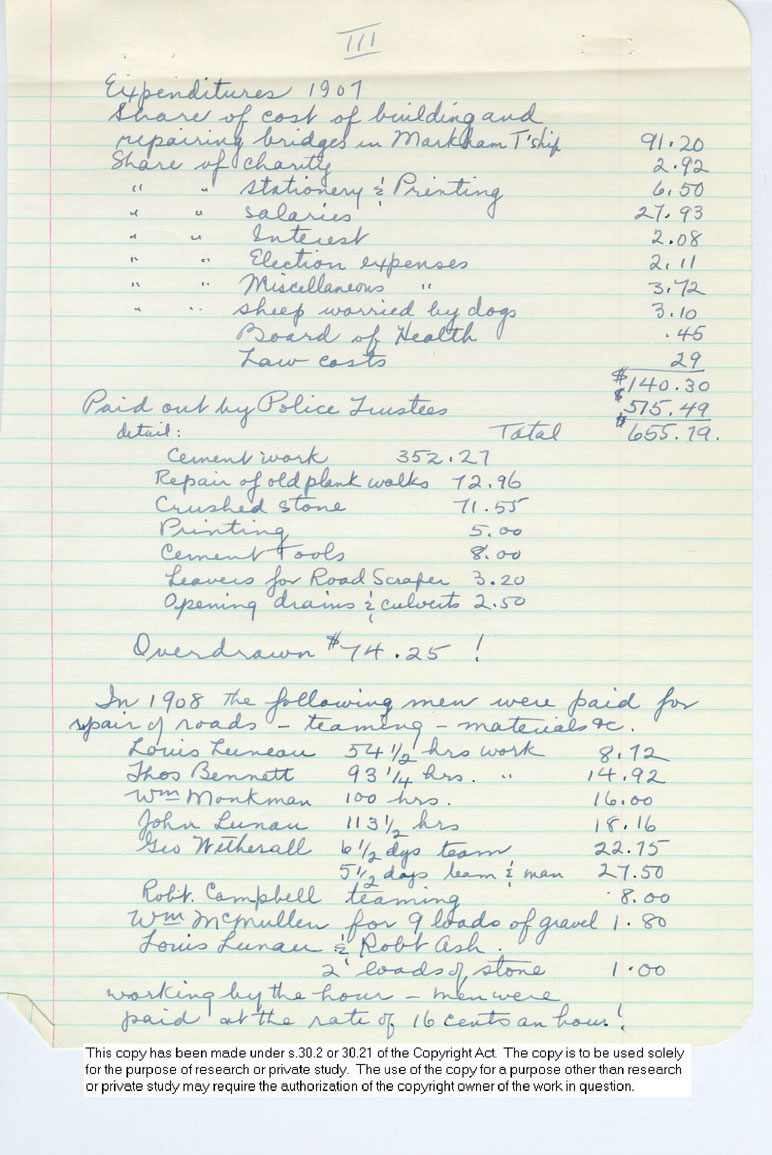 III
Expenditures 1907
Share of cost of building and
repairing bridges in Markham T'ship 91.20
Share of charity 2.92
" " stationery & Printing 6.50
" " salaries 27.93
" " Interest 2.08
" " Election expenses 2.11
" " Miscellaneous " 3.72
" " sheep worried by dogs 3.10
Board of Health .45
Law costs 29
$140.30
Paid out by Police Trustees $515.49
detail: Total $655.79.
Cement work 352.27
Repair of old plank walks 72.96
Crushed stone 71.55
Printing 5.00
Cement Tools 8.00
Leavers for Road Scraper 3.20
Opening drains & culverts 2.50
Overdrawn $74.25 !
In 1908 the following men were paid for
repair of roads - teaming - materials &c.
Louis Luneau 54 1/2 hrs work 8.72
Thos Bennett 93 1/4 hrs. " 14.92
Wm Monkman 100 hrs. 16.00
John Lunau 113 1/2 hrs 18.16
Geo Witherall 6 1/2 dys team 22.75
5 1/2 days team & man 27.50
Robt. Campbell teaming 8.00
Wm McMullen for 9 loads of gravel 1.80
Louis Lunau & Robt Ash.
2 loads of stone 1.00
working by the hour - men were
paid at the rate of 16 cents an hour!
This copy has been made under s.30.2 or 30.21 of the Copyright Act. The copy is to be used solely
for the purpose of research or private study. The use of the copy for a purpose other than research
or private study may require the authorization of the copyright owner of the work in question.